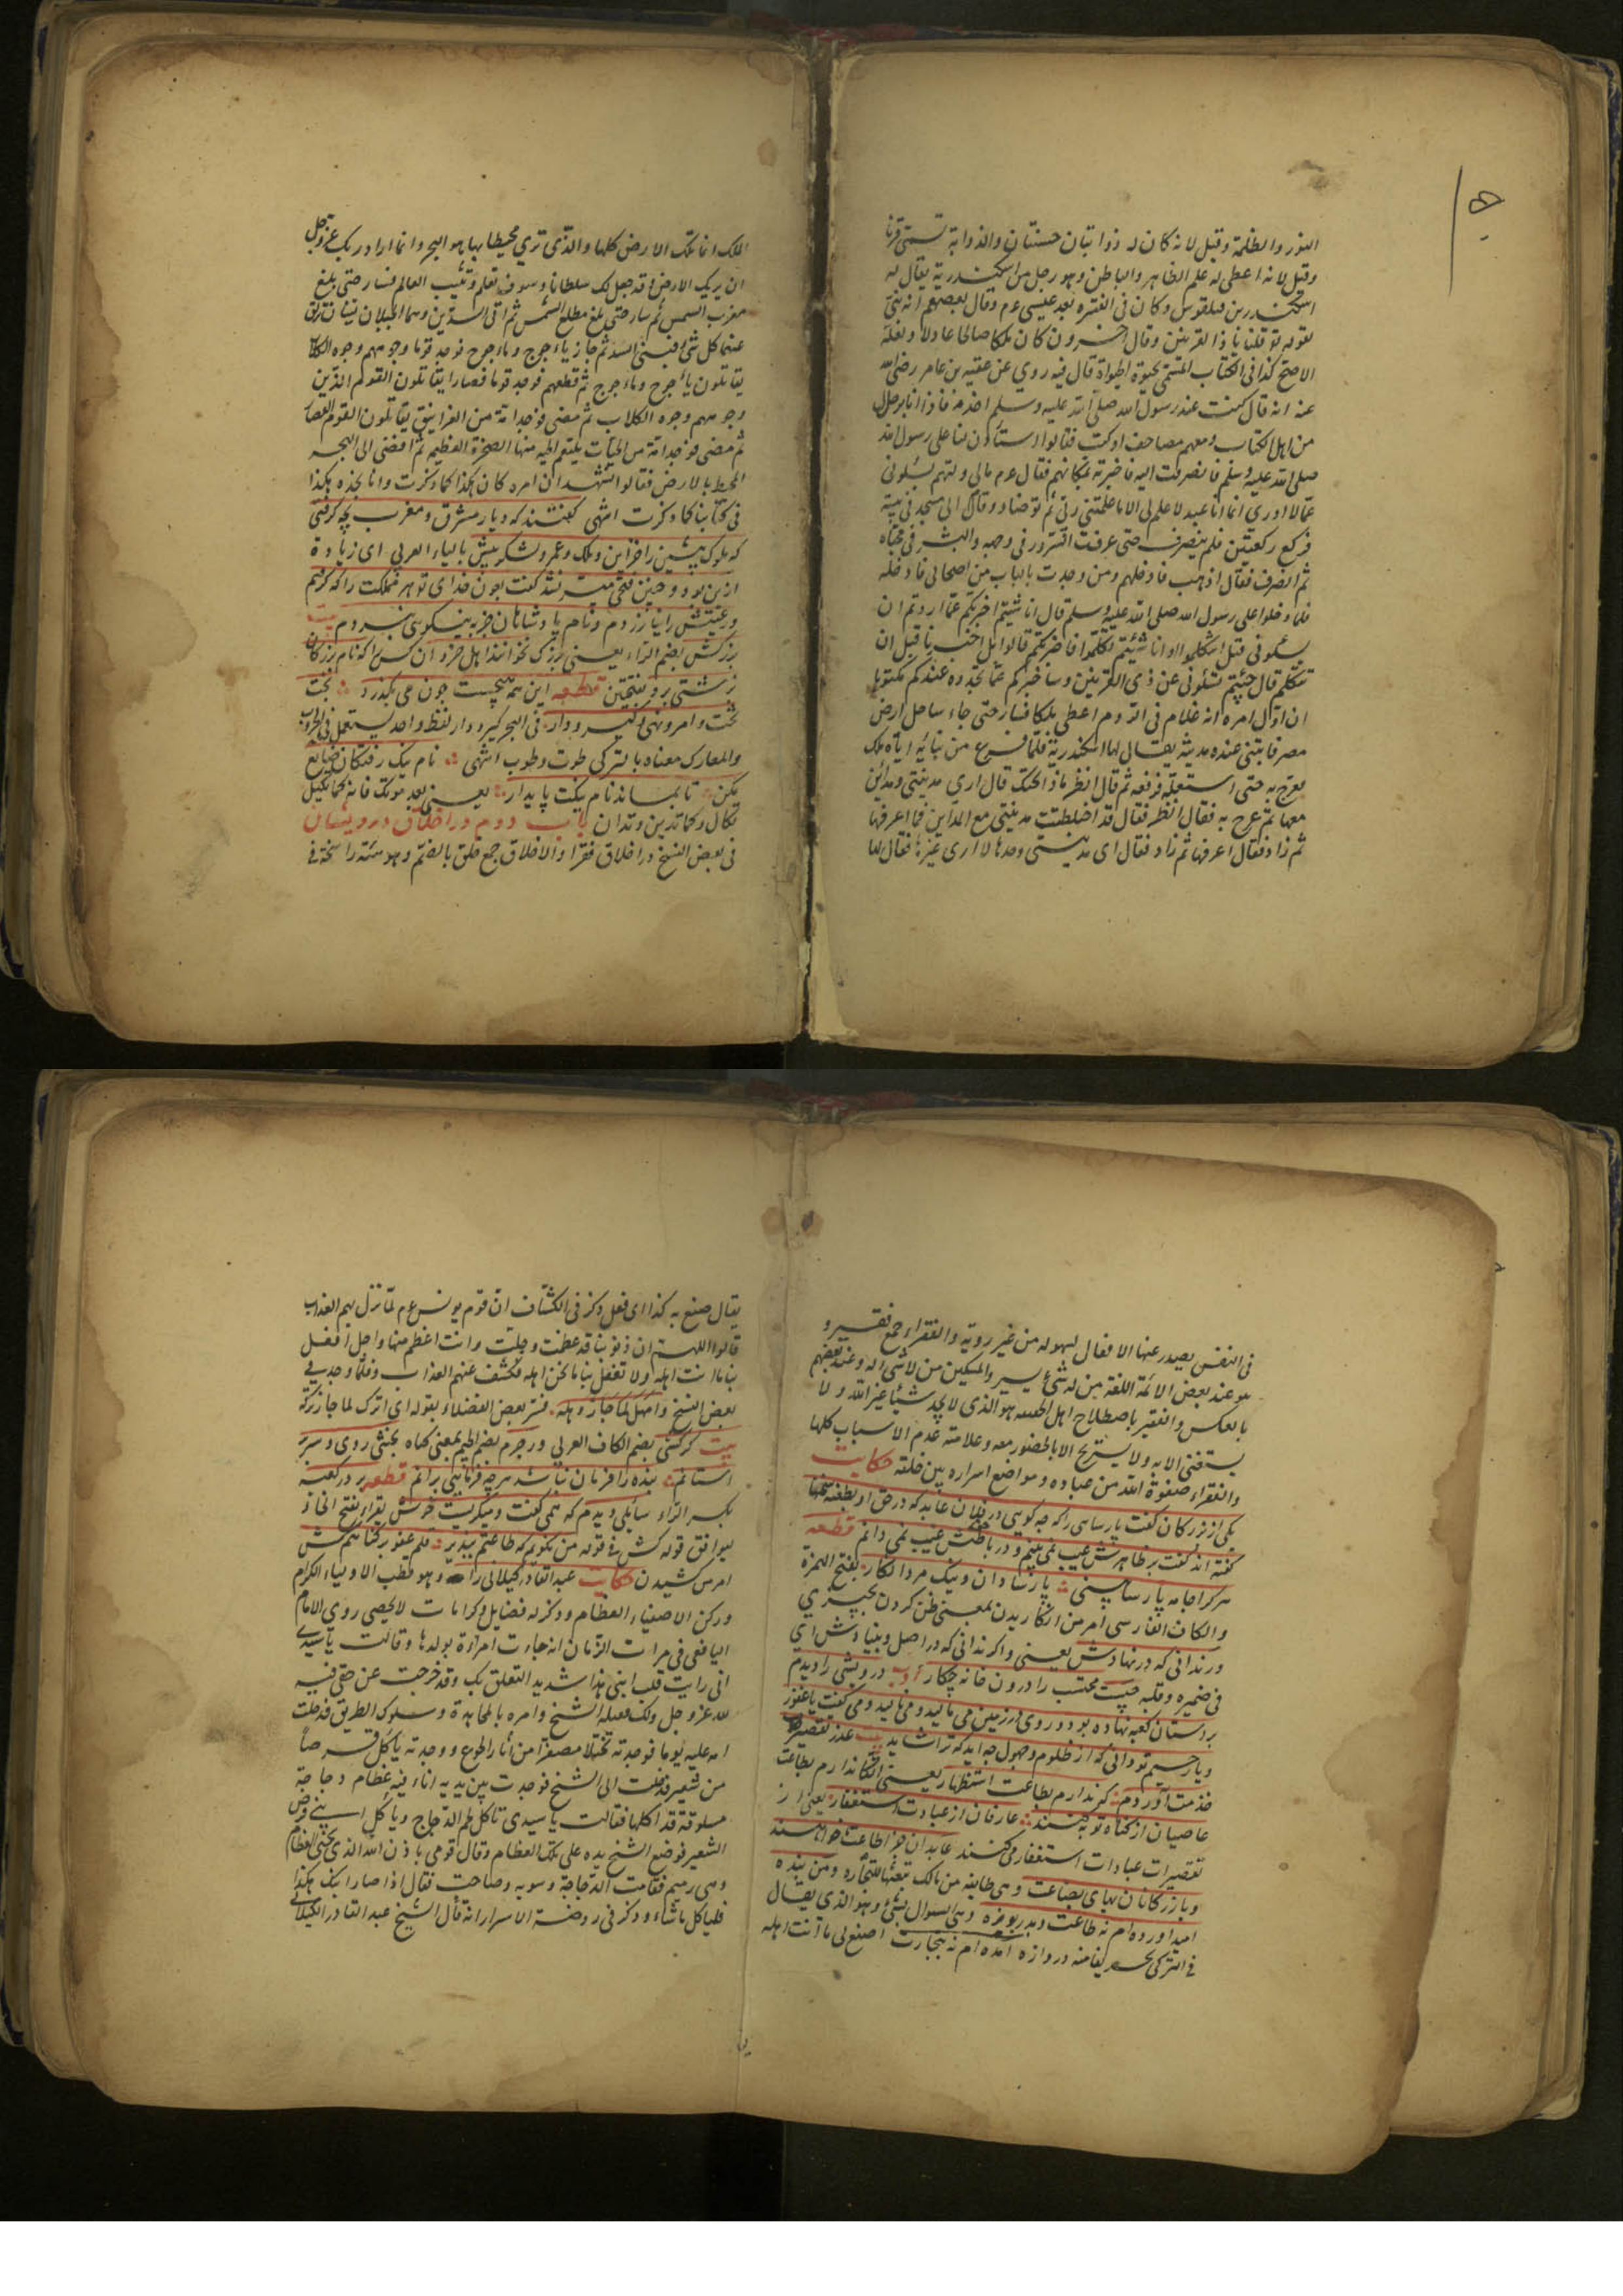 النور والظلمة وقيل لانه كان له ذوابتان حسنتان والذوابة تسمى قرنا
وقيل لانه اعطى له علم الظاهر والباطن وهو رجل من اسكندرية يقال له
اسكندر بن فيلقوس وكان فى الفترة بعد عيسى عم وقال بعضهم انه نبى
لقوله تع قلنا ياذا القرنين وقال اخرون كان ملكا صالحا عادلا ولعله
الاصح كذا فى الكتاب المسمى بحيوة الحيواة قال فيه روي عن عقبه بن عامر رضى الله
عنه انه قال كنت عند رسول الله صلى الله عليه وسلم اخدمه فاذا انا برجال
من اهل الكتاب ومعهم مصاحف او كتب فقالوا استأذن لنا على رسول الله
صلى الله عليه وسلم فانصرفت اليه فاخبرته بمكانهم فقال عم مالى ولهم يسئلونى
عمالا ادرى انما انا عبد لا علم لى الا ما علمنى ربى ثم توضاء وقال الى مسجد فى بيته
فركع ركعتين فلم ينصرف حتى عرفت السرور فى وجهه والبشر فى
ثم انصرف فقال اذهب فادخلهم ومن وجدت بالباب من اصحابى فادخله
فلما دخلوا على رسول الله صلى الله عليه وسلم قال ان شئتم اخبركم عما اردتم ان
تسئلونى قبل ان تتكلموا وان شئتم تكلموا فاخبركم قالوا بل اخبرنا قبل ان
نتكلم قال جئتم تسئلونى عن ذى القرنين وساخبركم عما تجدوه عندكم مكتوبا
ان اول امره انه غلام فى الروم اعطى ملكا فسار حتى جاء ساحل ارض
مصر فابتنى عنده مدينة يقال لها اسكندرية فلما فرغ من بنائه اتاه ملك
فعرج به حتى استقبله فرفعه ثم قال انظر ماذا تحتك قال ارى مدينتى ومداين
معها ثم عرج به فقال انظر فقال قد اختلطت مدينتى مع المداين فما اعرفها
ثم زاد فقال اعرفها ثم زاد فقال ارى مدينتى وحدها لا ارى غيرها فقال لها
الملك انما تلك الارض كلها والذى ترى محيطا بها هو البحر وانما اراد ربك عز وجل
ان يريك الارض وقد جعل لك سلطانا وسوف تعلم وتثبت العالم فسار حتى بلغ
مغرب الشمس ثم سار حتى بلغ مطلع الشمس ثم اتى السدين وهما الجبلان لينان تنزلق
عنهما كل شئ فبنى السد ثم جاز ياجوج وماجوج فوجد قوما وجوههم وجوه الكلاب
يقاتلون يأجوج ومأجوج ثم قطعهم فوجد قوما قصارا يقاتلون القوم الذين
وجوههم وجوه الكلاب ثم مضى فوجد امة من الغرانيق يقاتلون القوم القصار
ثم مضى فوجد امة من الحيات يلتقم الحية منها الصخرة العظيم ثم افضى الى البحر
المحيط بالارض فقالوا نشهد ان امره كان هكذا كما ذكرت وانا نجده هكذا
فى كتابنا كما ذكرت انتهى كفتند كه ديار مشرق ومغرب بچه كرفتى
كه ملوك پيشين را خزاين وملك وعمر ولشكر بيش بالياء العربى اى زيادة
ازين بود وچنين فتحى ميسر نشد كفت بعون خداى تو هر مملكت را كه كرفتم
ورعيتش را نيازردم ونام پادشاهان جز به نيكوى نبردم بيت
بزركش بضم الزاء يعنى بزرك نخوانند اهل خرد ان كس را كه نام بزركان
بزشتى برد بفتحتين قطعه اين همه هيچست چون مى بگذرد بخت
تخت وامر ونهى وكير ودار فى البحر كير ودار لفظ واحد يستعمل فى الحروب
والمعارك معناه بالتركى طوت وطوب انتهى نام نيك رفتكان ضايع
مكن تا بماند نام نيكت پايدار يعنى بعد موتك فانه كما تكيل
تكال وكما تدين تدان باب دوم در اخلاق درويشان
فى بعض النسخ در اخلاق فقرا والاخلاق جمع خلق بالضم وهو هيئة راسخة فى
فى النفس يصدر عنها الافعال بسهولة من غير روية والفقراء جمع فقير و
هو عند بعض الائمة اللغة من له شئ يسير والمسكين من لا شئ له وعند بعضهم
بالعكس والفقير باصطلاح اهل الحقيقه هو الذى لا يجد شيئا غير الله ولا
يستغنى الا به ولا يستريح الا بالحضور معه وعلامته عدم الاسباب كلها
والفقراء صفوة الله من عباده ومواضع اسراره بين خلقه حكايت
يكى از بزركان كفت پارسايى را كه چه كويى در فلان عابد كه در حق او بطعنه سخنها
كفته اند كفت بر ظاهرش عيب نمى بينم ودر باطنش غيب نمى دانم قطعه
هر كرا جامه پارسا بينى پارسا دان ونيك مرد انكار بفتح الهمزة
والكاف الفارسى امر من انكاريدن بمعنى ظن كردن بچيزى
ور ندانى كه در نهادش يعنى واكر ندانى كه در اصل وبنيادش اى
فى ضميره وقلبه چيست محتسب را درون خانه چكار ادب درويشى را ديدم
بر آستان كعبه نهاده بود وروى بر زمين مى ماليد ومى ناليد ومى كفت يا غفور
ويا رحيم تو دانى كه از ظلوم وجهول چه ايد كه ترا شايد بيت عذر تقصير
خدمت آوردم كه ندارم بطاعت استظهار يعنى اتكا ندارم بطاعت
عاصيان از كناه توبه كنند عارفان از عبادت استغفار يعنى از
تقصيرات عبادات استغفار مى كنند عابدان جزا طاعت خواهند
وبازركانان بهاى بضاعت وهى طائفة من مالك تبعثها للتجارة ومن بنده
اميد آورده ام نه طاعت وبدريوزه وهى السوال بشئ وهو الذى يقال
فى التركى دروازه آمده ام نه بتجارت اصنع لى ما انت اهله
يقال صنع به كذا اى فعل وذكر فى الكشاف ان قوم يونس عم لما نزل بهم العذاب
قالوا اللهم ان ذنوبنا قد عظمت وجلت وانت اعظم منها واجل افعل
بنا ما انت اهله ولا تفعل بنا ما نحن اهله فكشف عنهم العذاب وفلما وجد فى
بعض النسخ فسر بعض الفضلاء بقوله اى اترك لما جاز تركه
بيت كر كشى بضم الكاف العربى ور جرم بضم الجيم بمعنى كناه بخشى روى وسر بر
استانم بنده را فرمان نباشد هر چه فرمايى برانم قطعه بر در كعبه
بكسر الراء سائلى ديدم كه همى كفت وميكريست خوش يقرا بفتح الخاء
ليوافق قوله كش فى قوله من نكويم كه طاعتم بپذير قلم عفو بر كناهم كش
امر من كشيدن حكايت عبد القادر كيلانى را وهو قطب الاولياء الكرام
وركن الاصفياء العظام وذكر له فضايل وكرامات لا يحصى روى الامام
اليافعى فى مرات الزمان انه جاءت امراة بولدها وقالت يا سيدى
انى رايت قلب ابنى هذا شديد التعلق بك وقد خرجت عن حقى فيه
لله عز وجل ولك فقبله الشيخ وامره بالمجاهدة وسلوك الطريق فدخلت
امه عليه يوما فوجدته نحيلا مصفرا من آثار الجوع ووجدته ياكل قرصا
من شعير فدخلت الى الشيخ فوجدت بين يديه اناء فيه عظام دجاجة
مسلوقة قد اكلها فقالت يا سيدى تاكل لحم الدجاج وياكل ابنى قرص
الشعير فوضع الشيخ يده على تلك العظام وقال قومى باذن الله الذى يحيى العظام
وهى رميم فقامت الدجاجة وسوية وصاحت فقال اذا صار ابنك هكذا
فلياكل ما شاء وذكر فى روضة الاسرار انه قال الشيخ عبد القادر الكيلانى